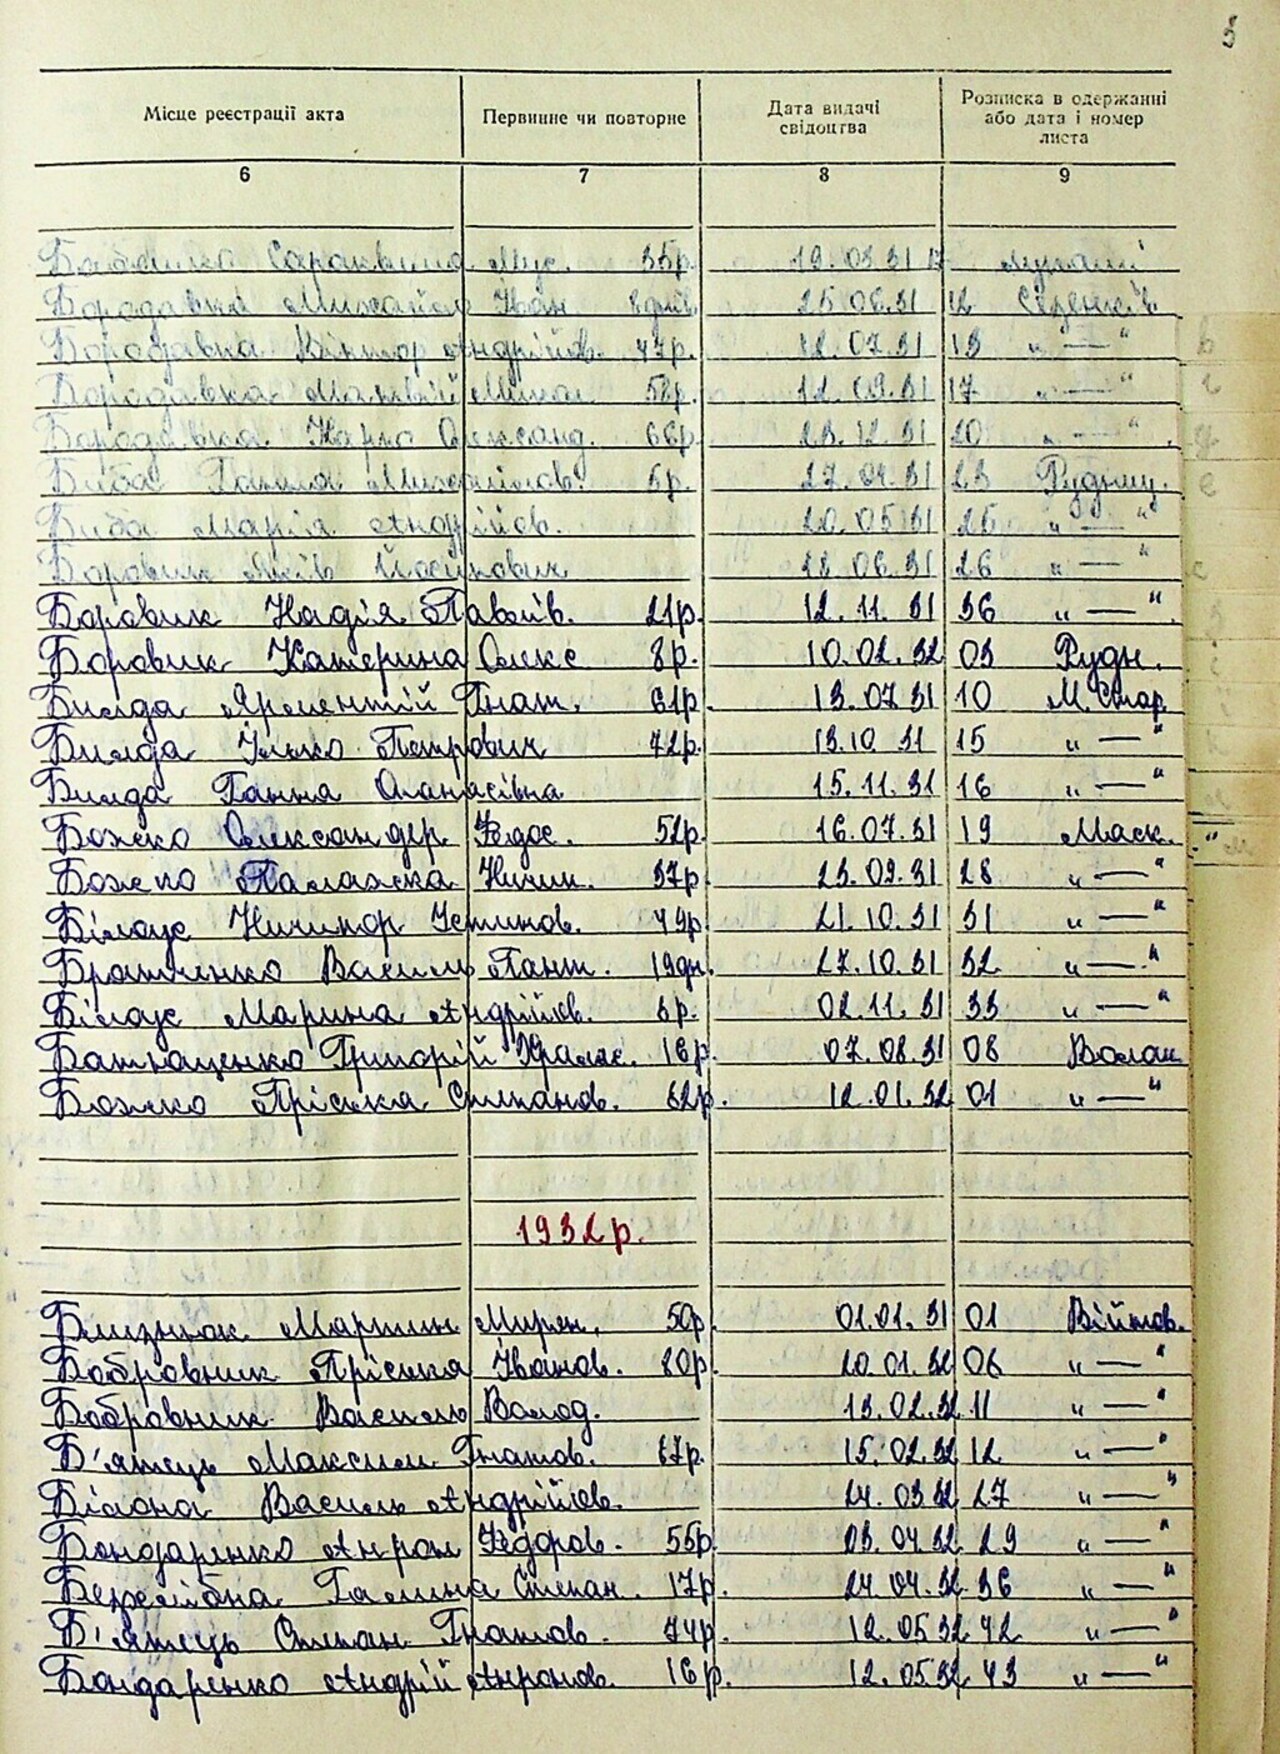 3
Місце реєстрації акта Первинне чи повторне Дата видачі свідоцтва Розписка в одержанні або дата і номер листа
6 7 8 9
35р. 19.03.31
Бородавка Михайло Іван 8 днів 25.06.31 12 Сезенків
Бородавка Віктор Андрійов. 47р. 12.07.31 13 „—“
Бородавка 58р. 12.09.31 17 „—“
Бородавка Карпо Олександ. 66р. 23.12.31 20 „—“
Биба Ганна Михайлов. 5р. 27.04.31 23 Рудниц.
Биба Марія Андрійов. 20.05.31 25 „—“
Боровик Яків Йосипович 18.06.31 26 „—“
Боровик Надія Павлів. 21р. 12.11.31 36 „—“
Боровик Катерина Олекс 8р. 10.02.32 03 Рудн.
Билда Ярментій Гнат. 61р. 13.07.31 10 М.Стар.
Билда Улько Петрович 72р. 13.10.31 15 „—“
Билда Ганна Опанасівна 15.11.31 16 „—“
Божко Олександер Федос. 52р. 16.07.31 19 Маск.
Божко Палажка Ничип. 37р. 23.09.31 28 „—“
Білоус Ничипор Устинов. 49р. 21.10.31 31 „—“
Братченко Василь Пант. 19дн. 27.10.31 32 „—“
Білоус Марина Андрійов. 6р. 02.11.31 33 „—“
Григорій 16р. 07.08.31 08 Волош.
Божко Пріська Степанов. 62р. 12.01.32 01 „—“
1932р.
Близнюк Мартин Мирон. 50р. 01.01.31 01 Війтов.
Бобровник Пріська Іванов. 80р. 20.01.32 06 „—“
Бобровник Василь Волод. 13.02.32 11 „—“
Б'ятець Максим Гнатов. 67р. 15.02.32 12 „—“
Білона Василь Андрійов. 24.03.32 27 „—“
Бондаренко Антон Федоров. 55р. 03.04.32 29 „—“
Галина Степан. 17р. 24.04.32 36 „—“
Б'ятець Степан Гнатов. 74р. 12.05.32 42 „—“
Бондаренко Андрій Антонов. 16р. 12.05.32 43 „—“